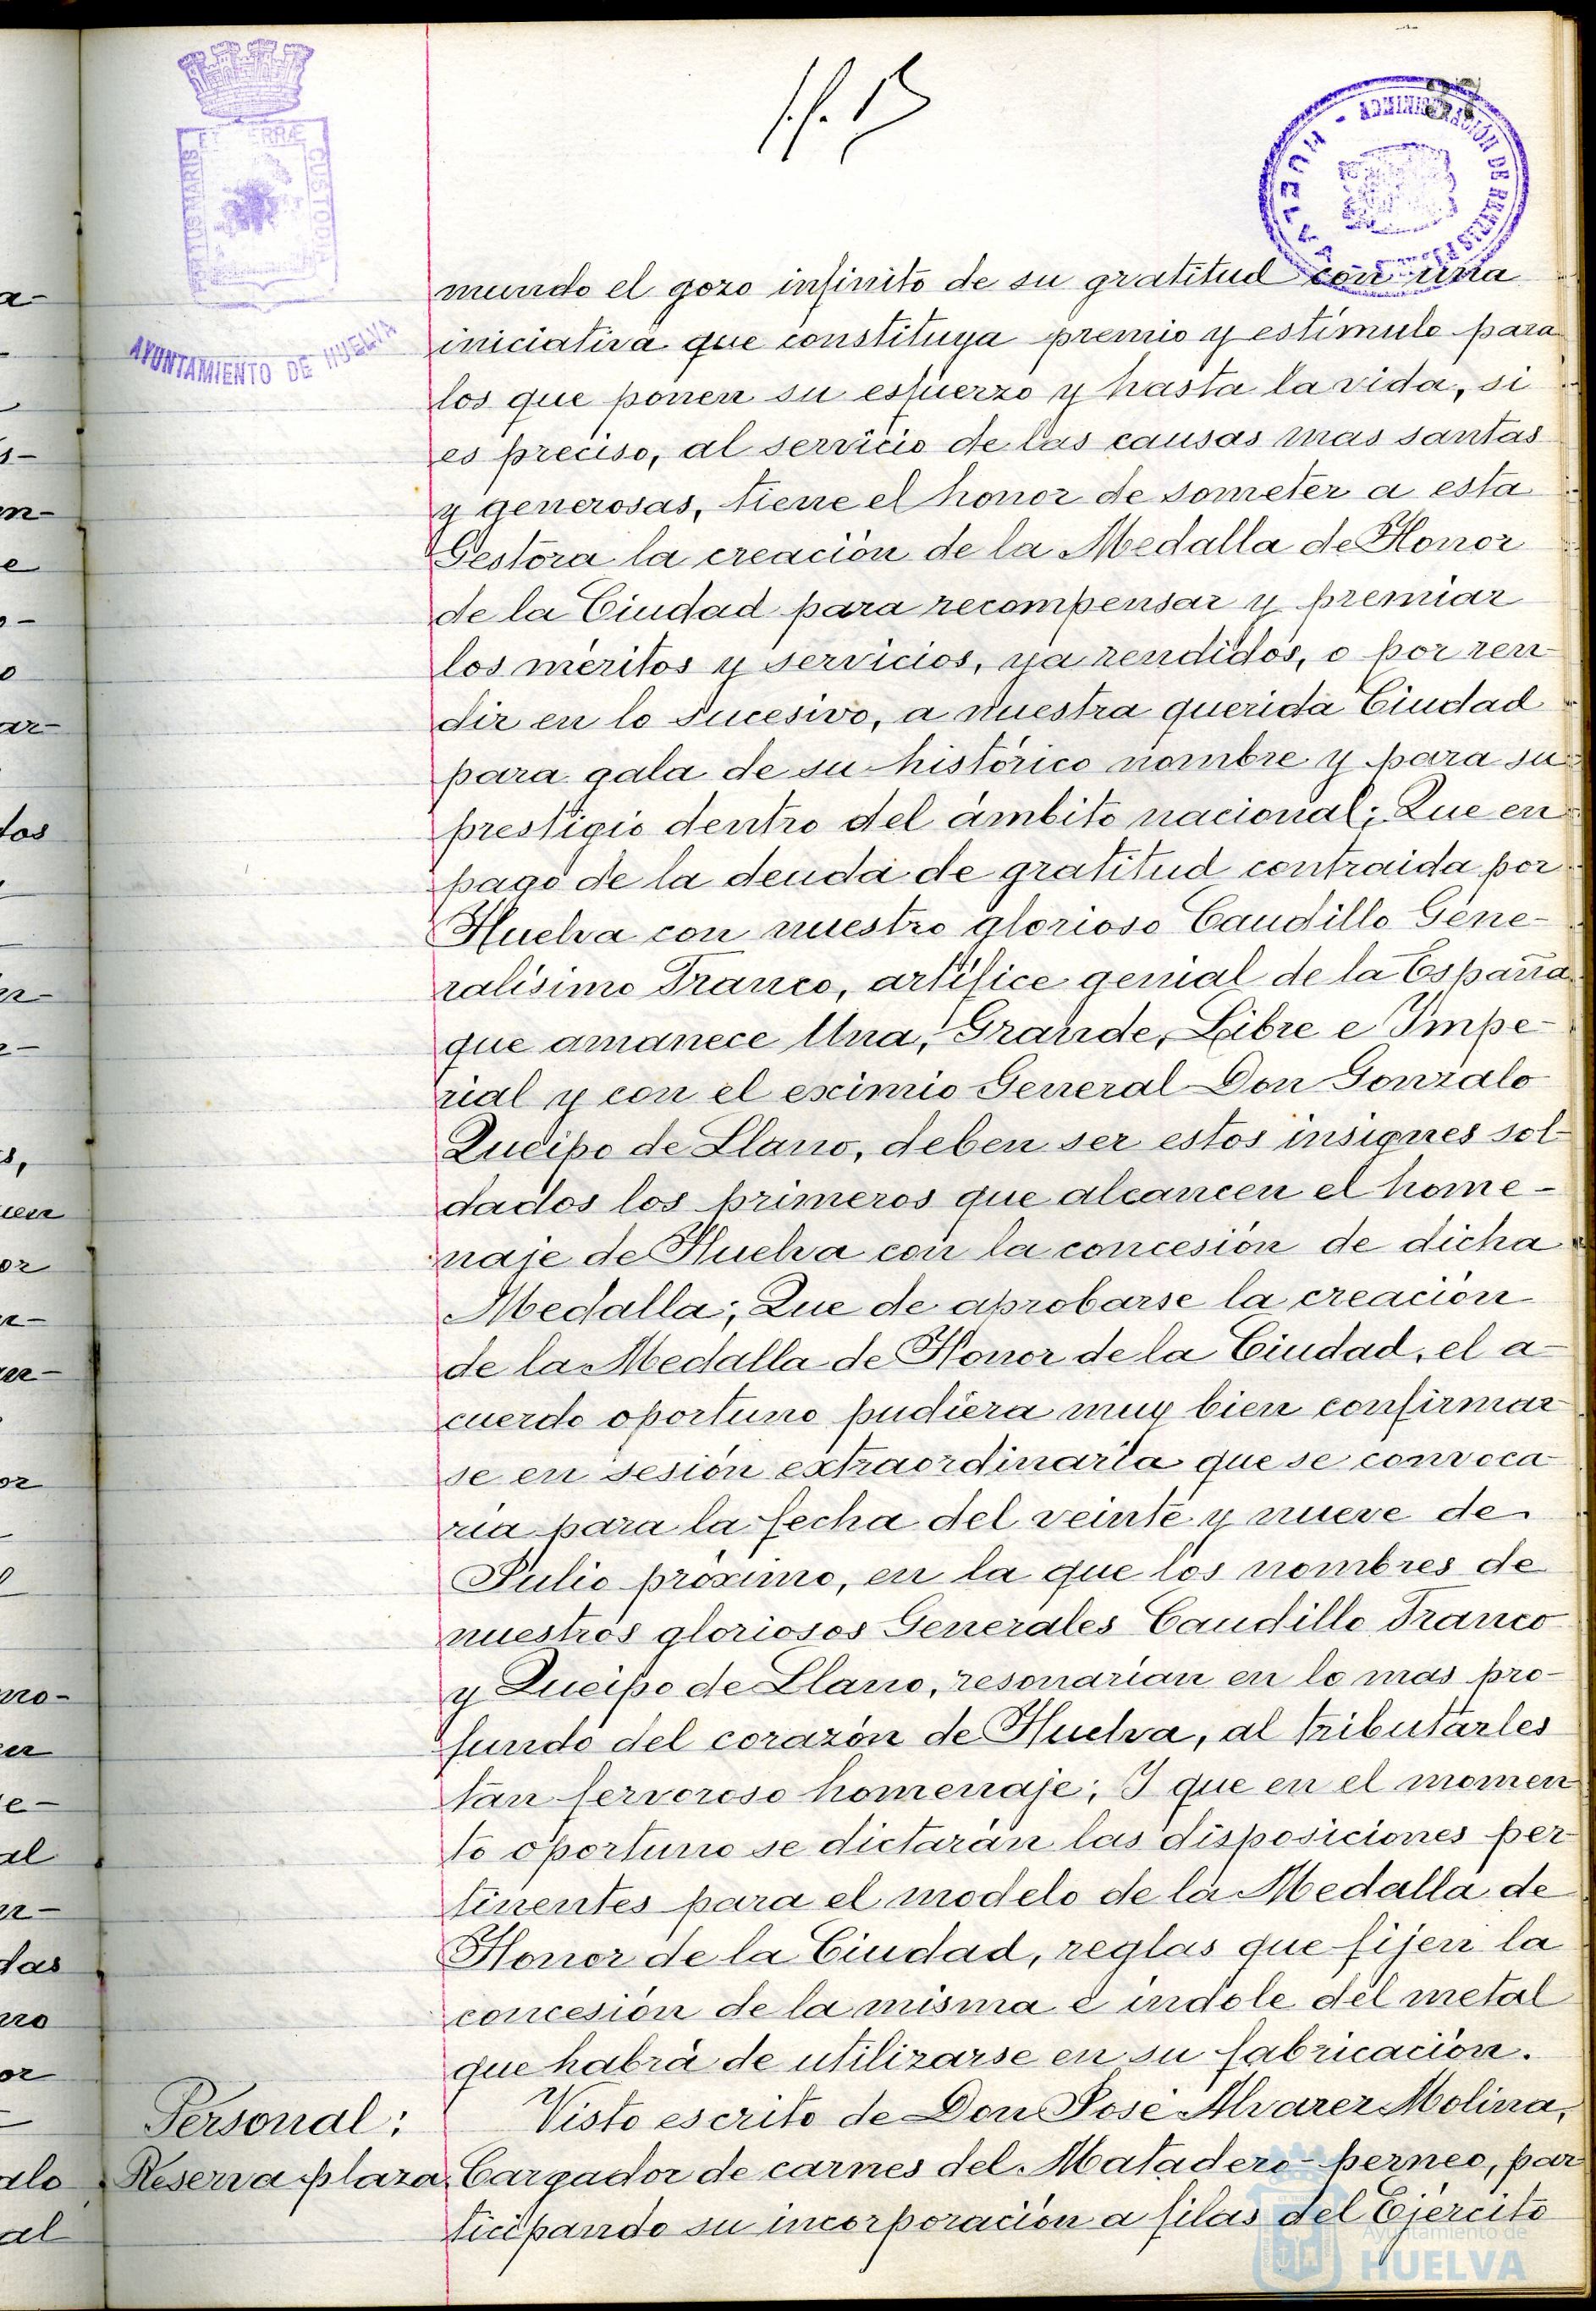 37
PORTUS MARIS ET TERRÆ CUSTODIA
AYUNTAMIENTO DE HUELVA
HUELVA - ADMINISTRACIÓN DE RENTAS
mundo el gozo infinito de su gratitud con una
iniciativa que constituya premio y estímulo para
los que ponen su esfuerzo y hasta la vida, si
es preciso, al servicio de las causas mas santas
y generosas, tiene el honor de someter a esta
Gestora la creación de la Medalla de Honor
de la Ciudad para recompensar y premiar
los méritos y servicios, ya rendidos, o por ren
dir en lo sucesivo, a nuestra querida Ciudad
para gala de su histórico nombre y para su
prestigio dentro del ámbito nacional; Que en
pago de la deuda de gratitud contraida por
Huelva con nuestro glorioso Caudillo Gene-
ralísimo Franco, artífice genial de la España
que amanece Una, Grande, Libre e Impe-
rial y con el eximio General Don Gonzalo
Queipo de Llano, deben ser estos insignes sol-
dados los primeros que alcancen el home-
naje de Huelva con la concesión de dicha
Medalla; Que de aprobarse la creación
de la Medalla de Honor de la Ciudad, el a-
cuerdo oportuno pudiera muy bien confirmar
se en sesión extraordinaria que se convoca
ría para la fecha del veinte y nueve de
Julio próximo, en la que los nombres de
nuestros gloriosos Generales Caudillo Franco
y Queipo de Llano, resonarían en lo mas pro-
fundo del corazón de Huelva, al tributarles
tan fervoroso homenaje; Y que en el momen
to oportuno se dictarán las disposiciones per-
tinentes para el modelo de la Medalla de
Honor de la Ciudad, reglas que fijen la
concesión de la misma e índole del metal
que habrá de utilizarse en su fabricación.
Personal: Visto escrito de Don José Alvarez Molina,
Reserva plaza Cargador de carnes del Matadero-perneo, par
ticipando su incorporación a filas del Ejército
Ayuntamiento de
HUELVA